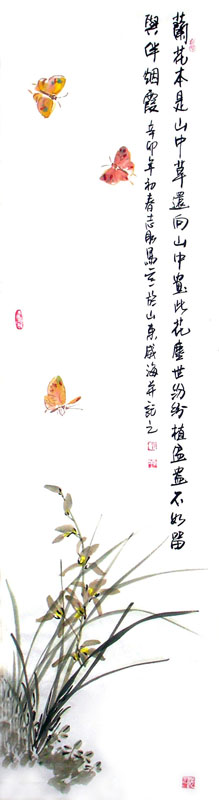 蘭花本是山中草還向山中此花塵世紛紛植盆盎不如留
與伴烟霞 辛卯年初春志於山東威海并記之